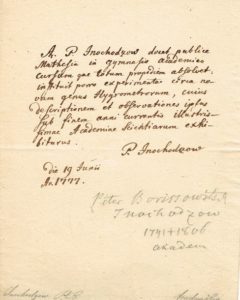 A. P. Inochodzow docet publice
Mathesin in gymnasio Academiae
cursum que totum propediem absolvet,
instituit porro experimenta circa no-
vum genus Hygrometrorum, cuius
descriptionem et observationes ipsas
sub finem anni currentis illustris-
simae Academiae Scientiarum exhi-
biturus.
P. Inochodzow
die 19 Junii
An. 1777.
Peter Borissowitsch
Inochodzow
1741 + 1806
akadem